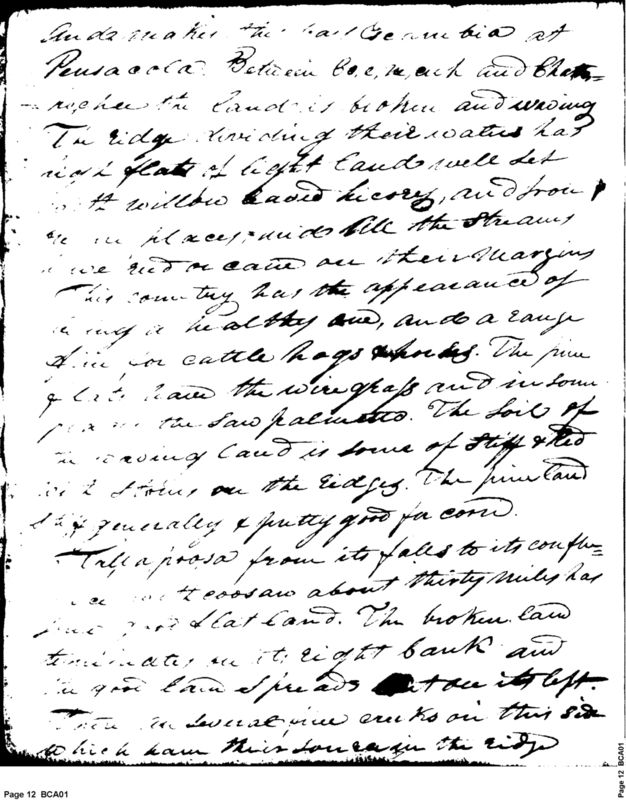 and makes the                at
Pensacola. Between Co,e,ne,cuh and Chatta=
     the land is broken and waving
The ridge dividing their waters has
high flats of light land well set
with willow leaved hicory, and iron
  in places; and all the streams
have reed or cane on their margins
This country has the appearance of
being a healthy one, and a range
fine for cattle hogs & horses. The pine
flats have the wiregrass and in some
places the saw palmetto. The soil of
the waving land is some of stiff & red
with stones on the ridges. The pine land
stiff generally & pretty good for corn.
Tallapoosa from its falls to its conflu=
ence with coosau about thirty miles has
some good flat land. The broken land
terminates on its right bank and
the good land spreads out on its left.
There     several pine creeks on this side
which have their source in the ridge
Page 12 BCA01
Page 12 BCA01